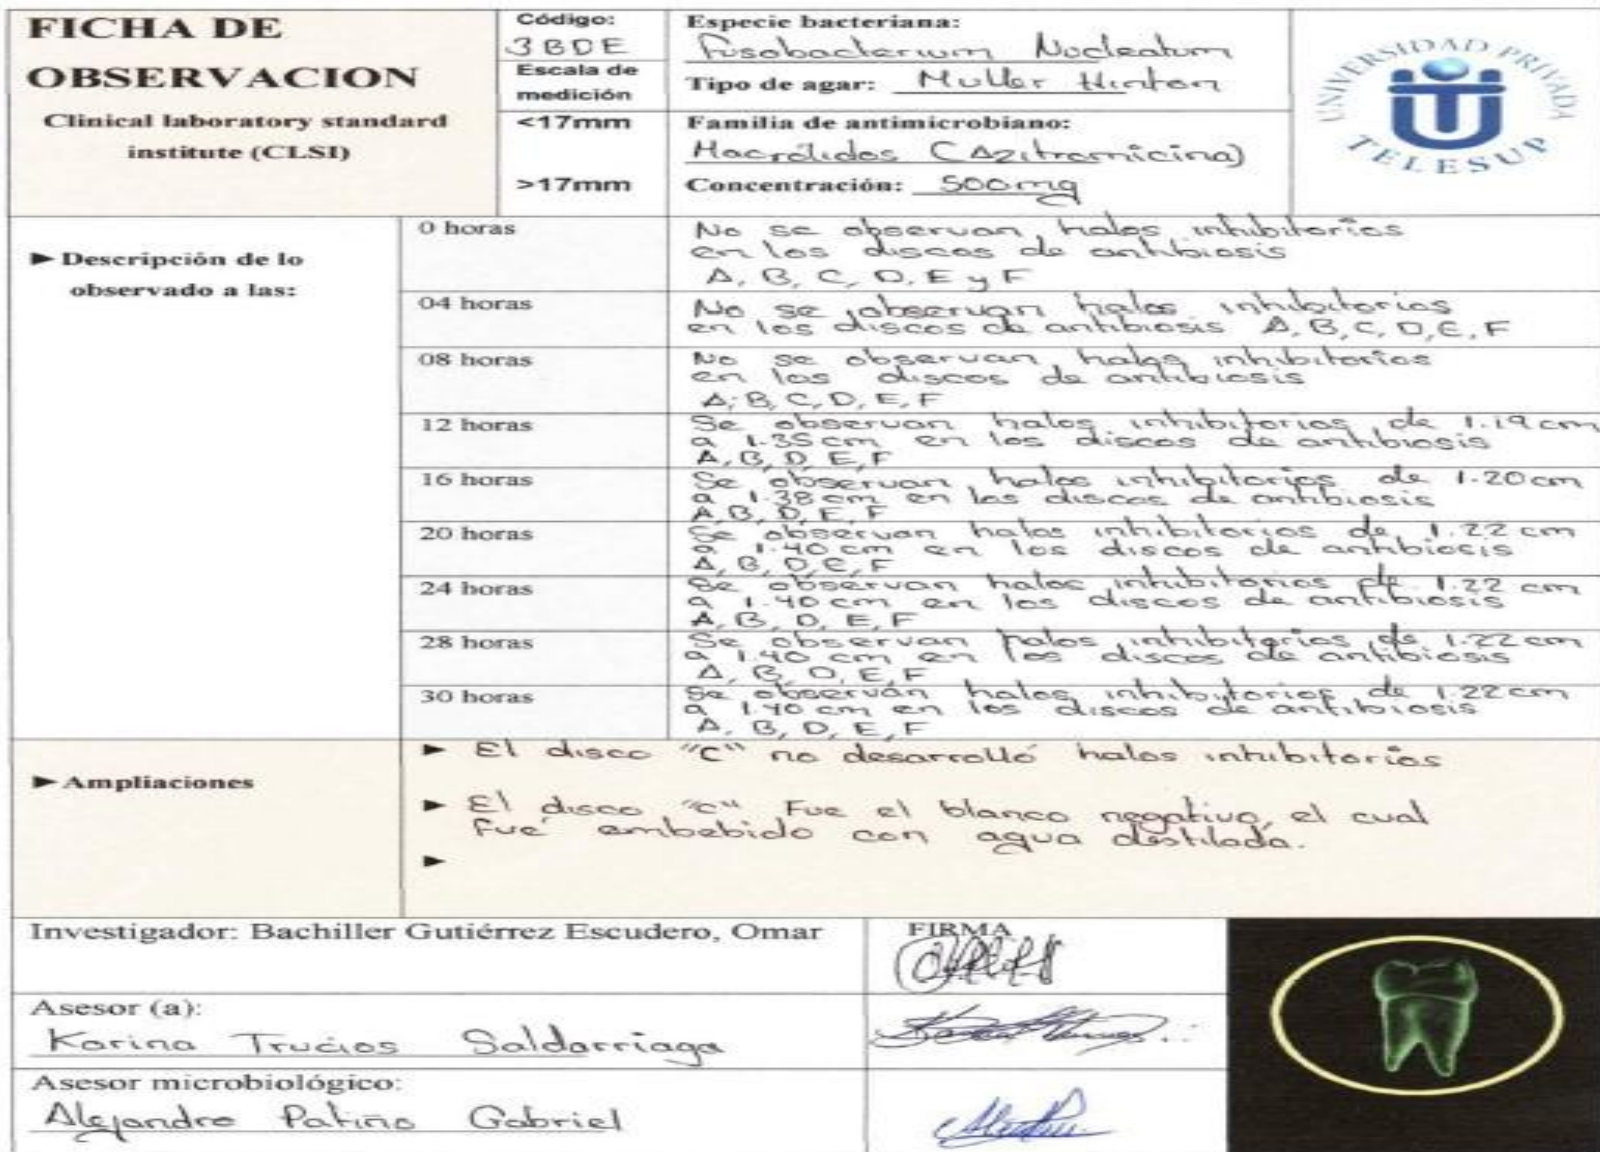 FICHA DE
OBSERVACION
Clinical laboratory standard
institute (CLSI)
Código:
3BDE
Escala de
medición
<17mm
>17mm
Especie bacteriana:
Fusobacterium Nucleatum
Tipo de agar: Muller Hinton
Familia de antimicrobiano:
Macrólidos (Azitromicina)
Concentración: 500mg
UNIVERSIDAD PRIVADA
TELESUP
► Descripción de lo
observado a las:
0 horas
No se observan halos inhibitorios
en los discos de antibiosis
A, B, C, D, E y F
04 horas
No se observan halos inhibitorios
en los discos de antibiosis A, B, C, D, E, F
08 horas
No se observan halos inhibitorios
en los discos de antibiosis
A, B, C, D, E, F
12 horas
Se observan halos inhibitorios de 1.19 cm
a 1.35 cm en los discos de antibiosis
A, B, D, E, F
16 horas
Se observan halos inhibitorios de 1.20 cm
a 1.38 cm en los discos de antibiosis
A, B, D, E, F
20 horas
Se observan halos inhibitorios de 1.22 cm
a 1.40 cm en los discos de antibiosis
A, B, D, E, F
24 horas
Se observan halos inhibitorios de 1.22 cm
a 1.40 cm en los discos de antibiosis
A, B, D, E, F
28 horas
Se observan halos inhibitorios de 1.22 cm
a 1.40 cm en los discos de antibiosis
A, B, D, E, F
30 horas
Se observan halos inhibitorios de 1.22 cm
a 1.40 cm en los discos de antibiosis
A, B, D, E, F
► Ampliaciones
► El disco "C" no desarrolló halos inhibitorios
► El disco "C" Fue el blanco negativo, el cual
Fue embebido con agua destilada.
►
Investigador: Bachiller Gutiérrez Escudero, Omar
FIRMA
Asesor (a):
Karina Trucios Saldarriaga
Asesor microbiológico:
Alejandro Patiño Gabriel